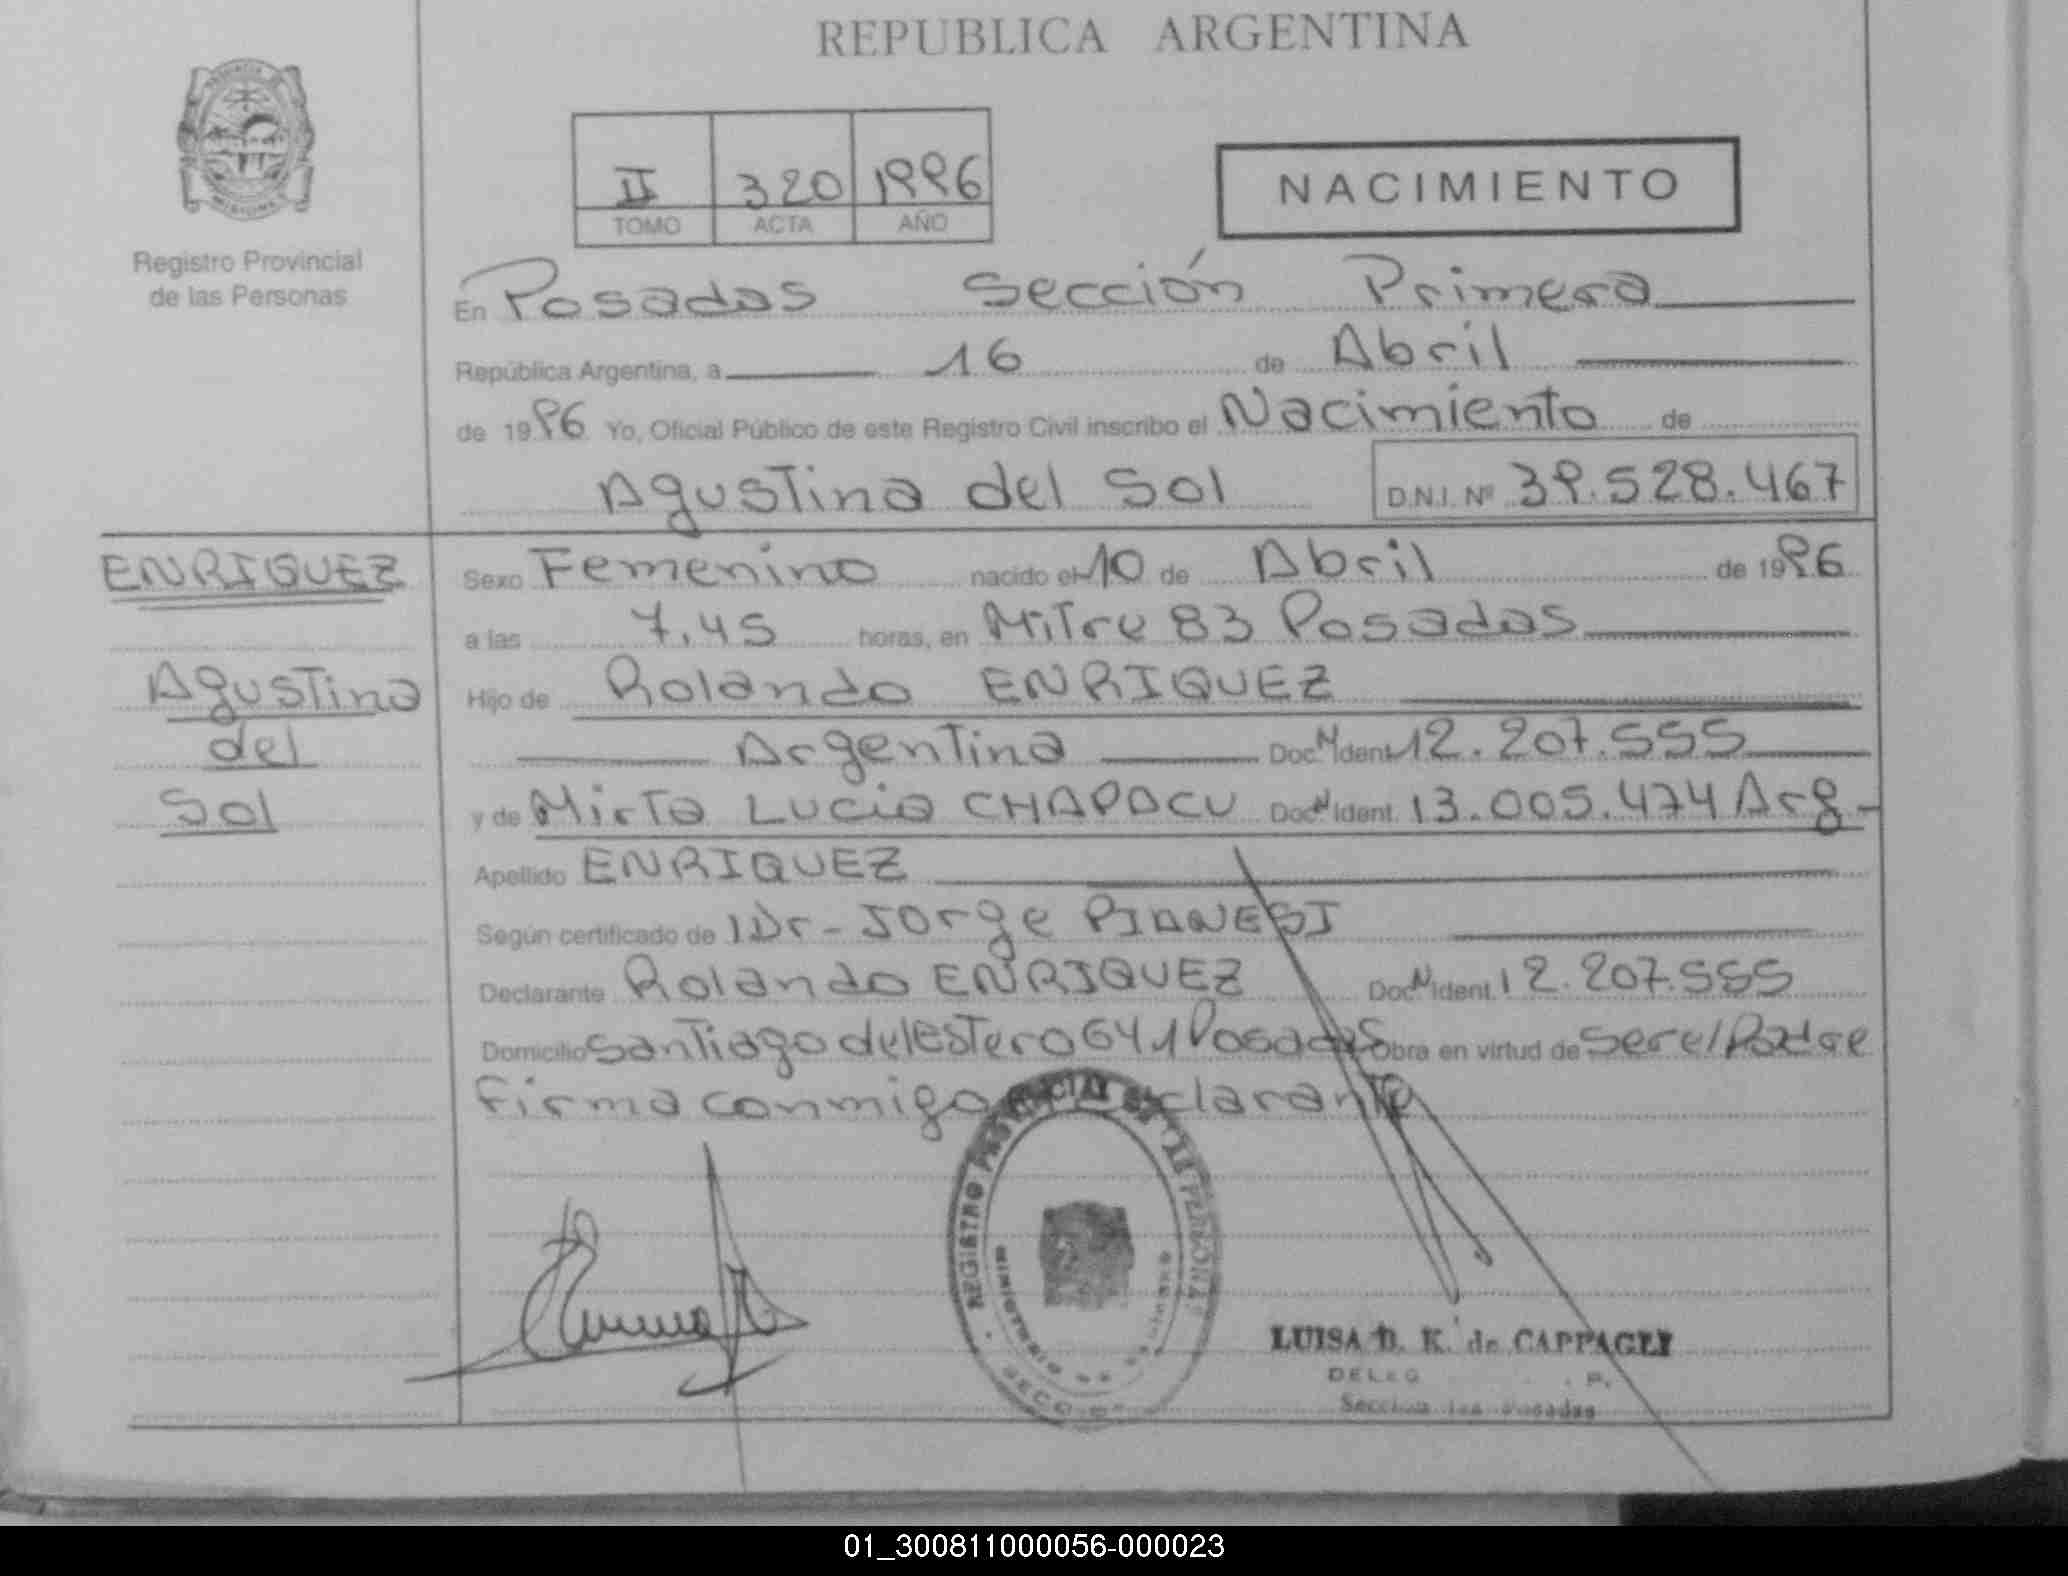 REPUBLICA ARGENTINA
Registro Provincial
de las Personas
II 320 1996
TOMO ACTA AÑO
NACIMIENTO
En Posadas Sección Primera
República Argentina, a 16 de Abril
de 1996 Yo, Oficial Público de este Registro Civil inscribo el Nacimiento de
Agustina del Sol D.N.I. Nº 39.528.467
ENRIQUEZ
Agustina
del
Sol
Sexo Femenino nacido el 10 de Abril de 1996
a las 7.45 horas, en Mitre 83 Posadas
Hijo de Rolando ENRIQUEZ
Argentina Doc N Ident. 12.207.555
y de Mirta Lucia CHAPACU Doc N Ident. 13.005.474 Arg-
Apellido ENRIQUEZ
Según certificado de Dr- Jorge PIANESI
Declarante Rolando ENRIQUEZ Doc N Ident. 12.207.555
Domicilio Santiago del Estero 641 Posadas Obra en virtud de ser el Padre
Firma conmigo declarante
REGISTRO PROVINCIAL DE LAS PERSONAS
MINISTERIO DE
LUISA B. K. de CAPPAGLI
Seccion 1ra Posadas
01_300811000056-000023